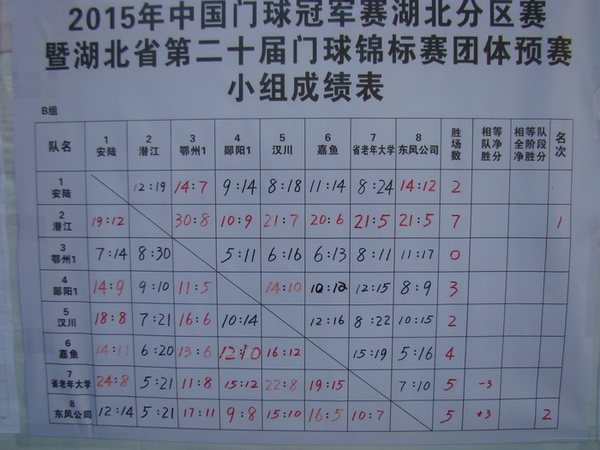 2015年中国门球冠军赛湖北分区赛
暨湖北省第二十届门球锦标赛团体预赛
小组成绩表
B组
队名 1 安陆 2 潜江 3 鄂州1 4 郧阳1 5 汉川 6 嘉鱼 7 省老年大学 8 东风公司 胜场数 相等队净胜分 相等全阶净胜 队段分 名次
1 安陆 12:19 14:7 9:14 8:18 11:14 8:24 14:12 2
2 潜江 19:12 30:8 10:9 21:7 20:6 21:5 21:5 7 1
3 鄂州1 7:14 8:30 5:11 6:16 6:13 8:11 11:17 0
4 郧阳1 14:9 9:10 11:5 14:10 12:15 8:9 3
5 汉川 18:8 7:21 16:6 10:14 12:16 8:22 10:15 2
6 嘉鱼 14:11 6:20 13:6 12:10 16:12 15:19 5:16 4
7 省老年大学 24:8 5:21 11:8 15:12 22:8 19:15 7:10 5 -3
8 东风公司 12:14 5:21 17:11 9:8 15:10 16:5 10:7 5 +3 2